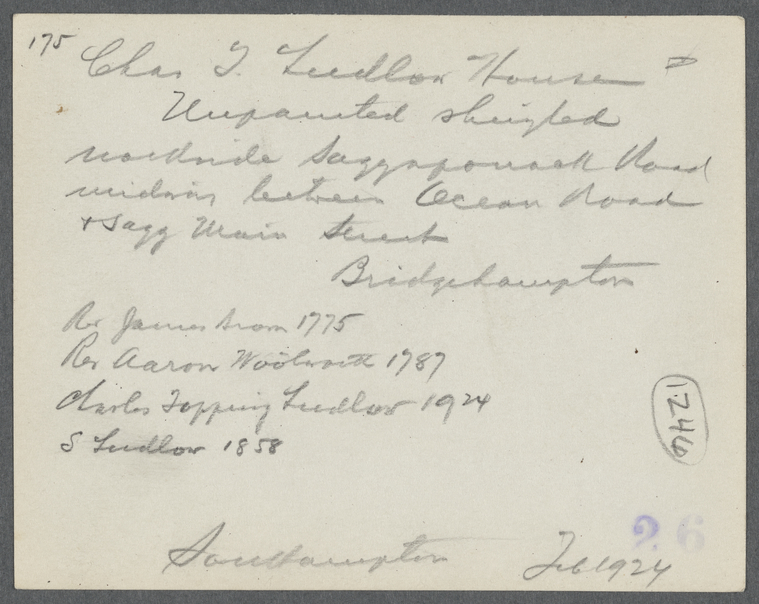 175
Chas T. Ludlow House
Unpainted shingled
northside Saggaponack Road
midway between Ocean Road
+ Sagg Main Street
Bridgehampton
Rev James Brown 1775
Rev Aaron Woolworth 1787
Charles Topping Ludlow 1924
S Ludlow 1858
1-246
26
Southampton Feb 1924